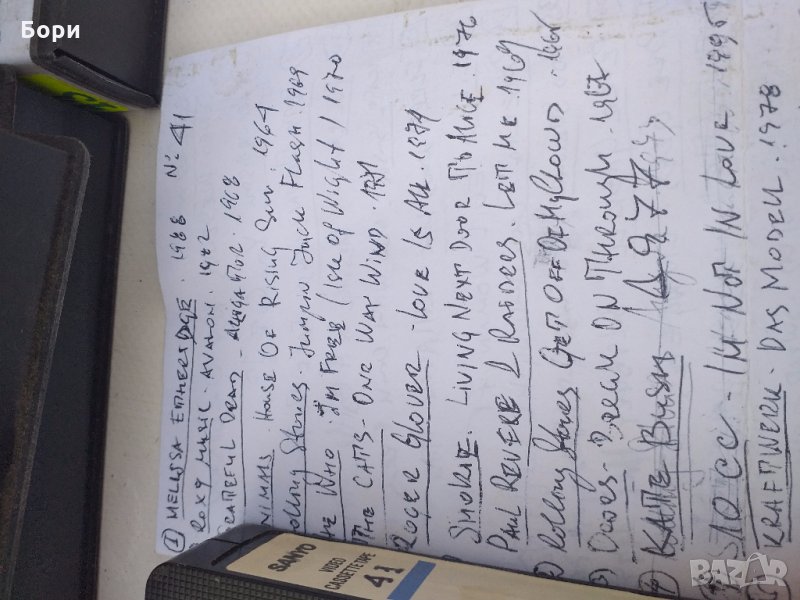 Бори
① MELISSA ETHERIDGE . 1988 N: 41
ROXY MUSIC - AVALON . 1982
GRATEFUL DEAD - ALIGATOR . 1968
ANIMALS HOUSE OF RISING SUN . 1964
Rolling Stones . Jumpin Jack Flash . 1969
THE WHO . I'M FREE / Isle of Wight / 1970
THE CATS - ONE WAY WIND . 1971
ROGER GLOVER - LOVE IS ALL . 1974
SMOKIE . LIVING NEXT DOOR TO ALICE . 1976
PAUL REVERE & RAIDERS . LET ME . 1969
Rolling Stones GET OFF OF MY CLOWD . 1965
DOORS - BREAK ON THROUGH . 1967
KATE BUSH 1977
10 CC - I'M NOT IN LOVE . 1995
KRAFTWERK - DAS MODELL . 1978
SANYO
VIDEO
CASSETTE TAPE
41
BAZAR